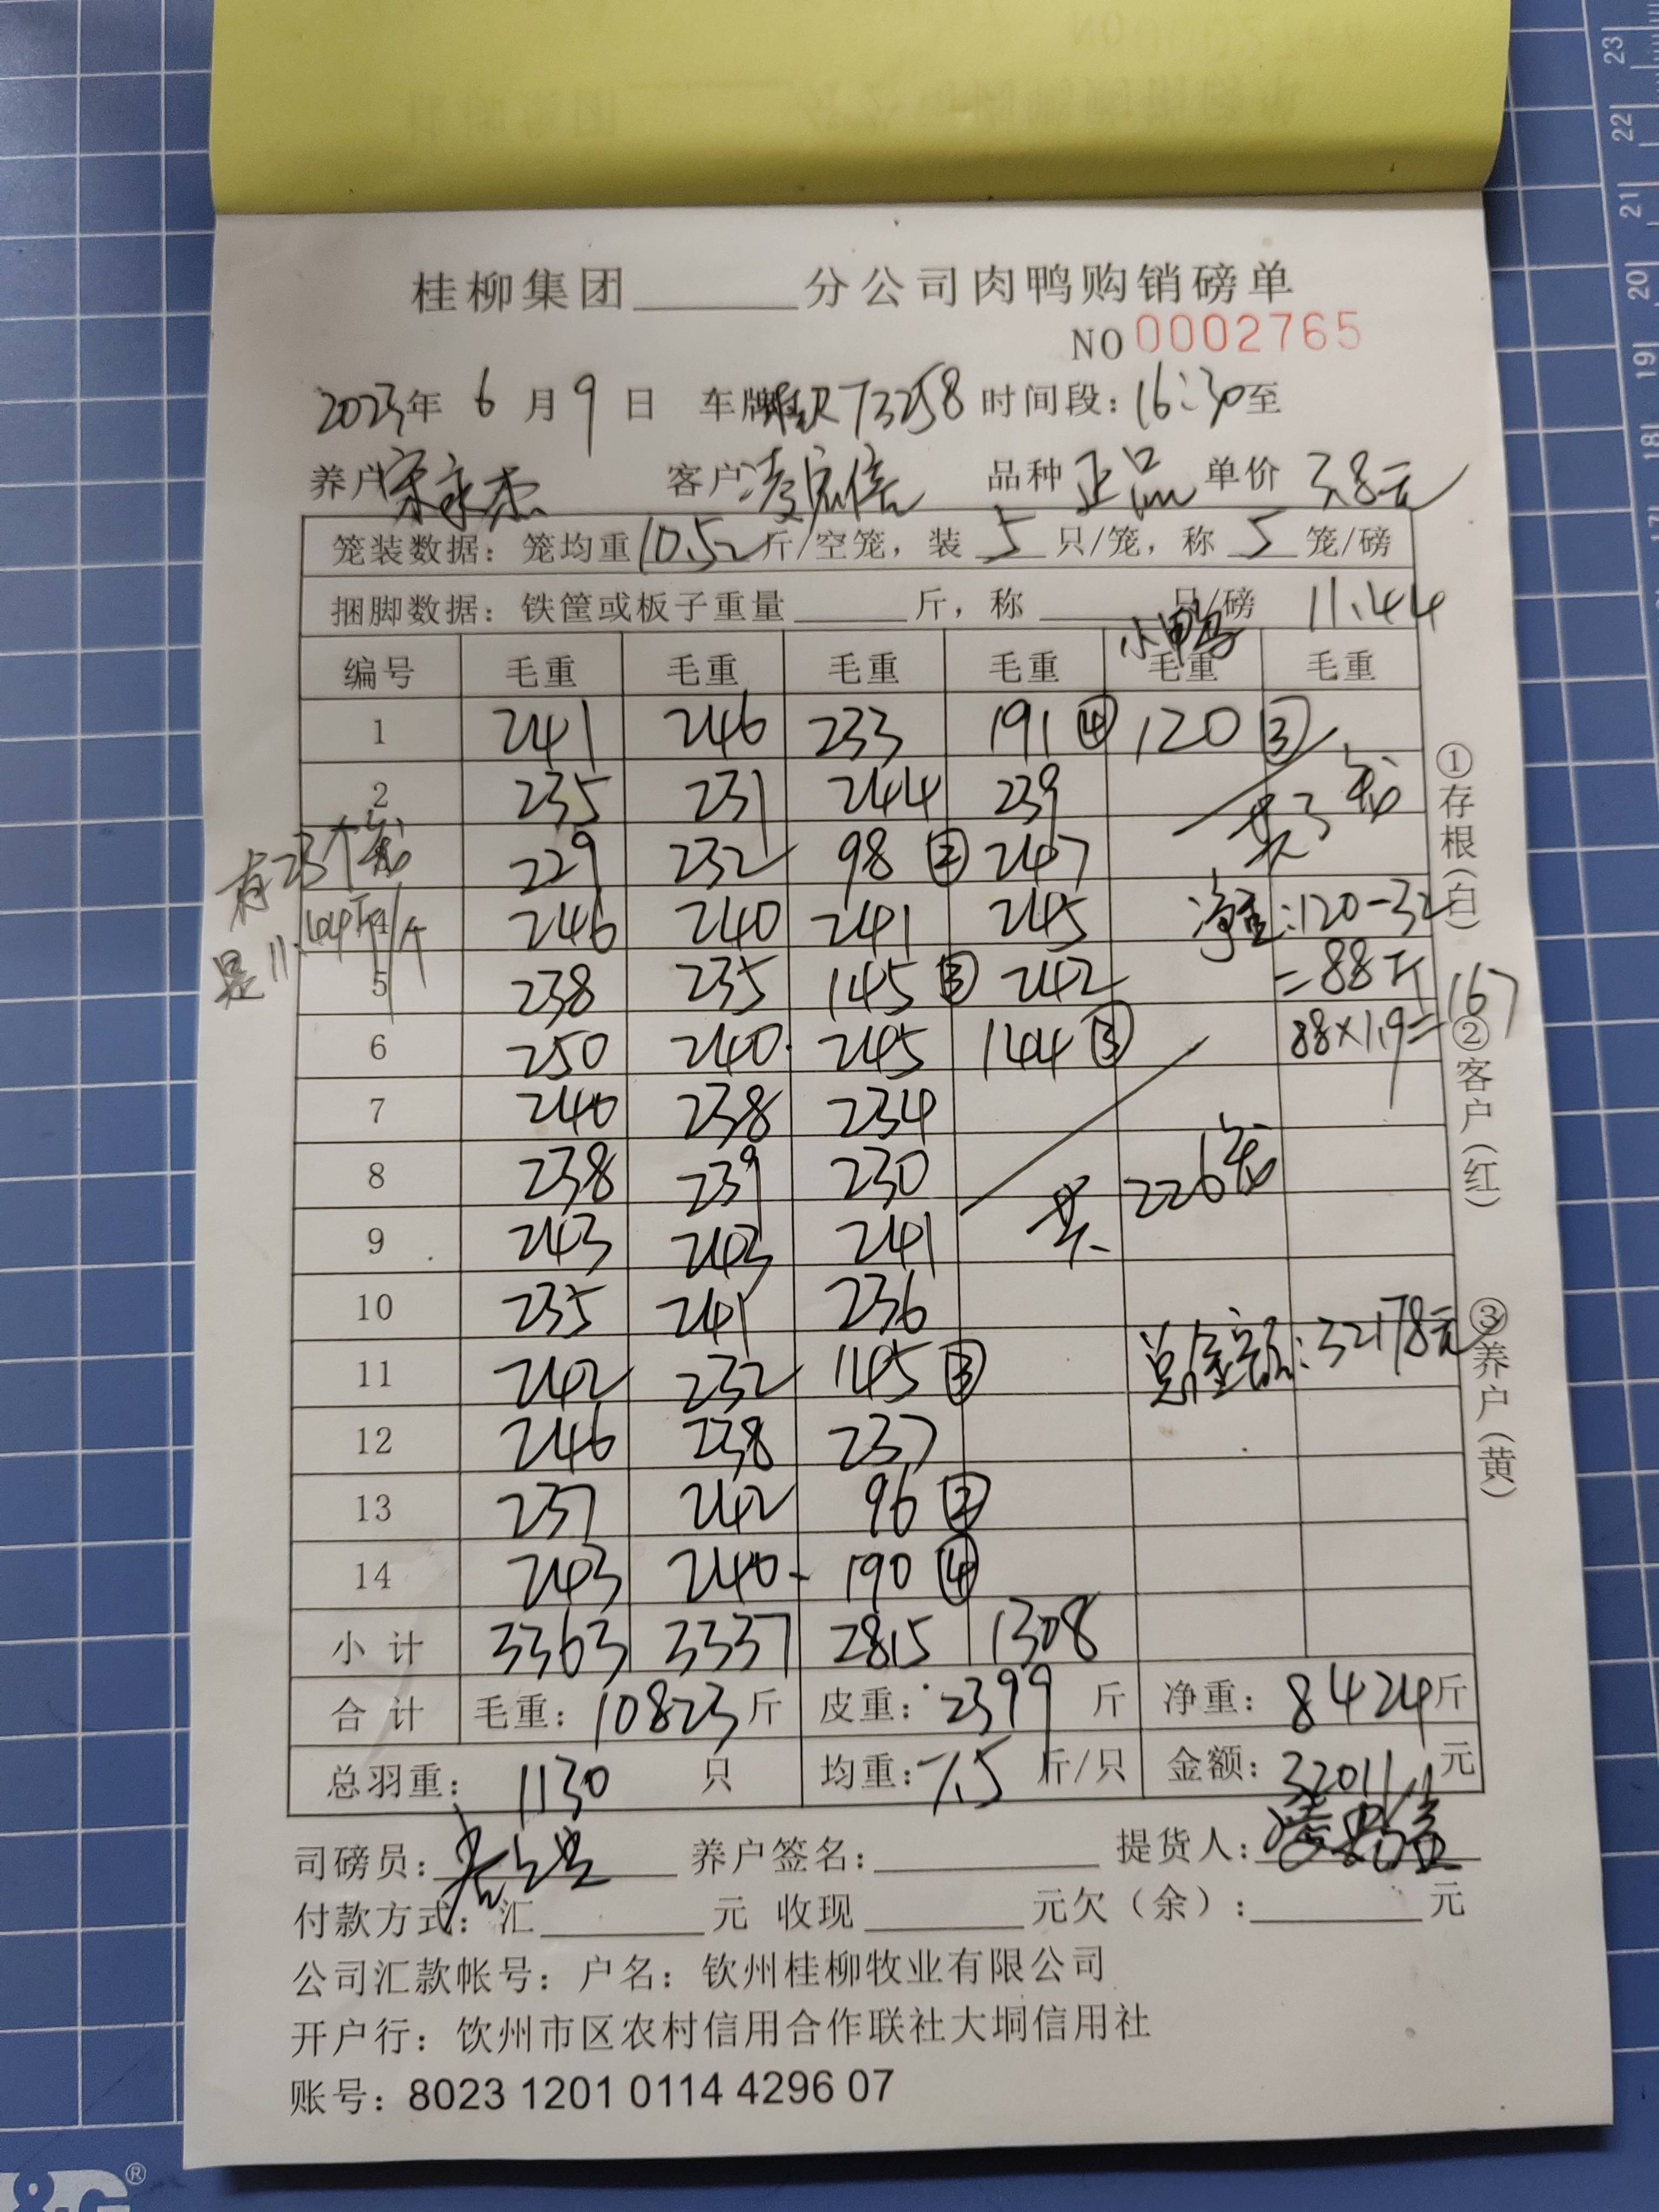 桂柳集团______分公司肉鸭购销磅单
NO 0002765
2023年 6 月 9 日 车牌 73258 时间段：16:30至
养户 宋永杰 客户 凌宏信 品种 正品 单价 3.8元
笼装数据：笼均重 10.52 斤/空笼，装 5 只/笼，称 5 笼/磅
捆脚数据：铁筐或板子重量______斤，称______只/磅 11.44
小鸭
编号 毛重 毛重 毛重 毛重 毛重 毛重
1 241 246 233 191 ④ 120 ③
2 235 231 244 239 共3笼
有23个笼
3 229 232 98 ② 247
是11.44斤/个
4 246 240 241 245 净重：120-32
5 238 235 145 ③ 242 =88斤
6 250 240 245 144 ③ 88×1.9=167
7 240 238 234
8 238 239 230 共 226笼
9 243 243 241
10 235 241 236
11 242 232 145 ③ 总金额：32178元
12 246 238 237
13 237 242 96 ②
14 243 240 190 ④
小计 3363 3337 2815 1308
合计 毛重：10823斤 皮重：2399 斤 净重：8424斤
总羽重：1130 只 均重：7.5 斤/只 金额：32011 元
①存根（白）
②客户（红）
③养户（黄）
司磅员： 养户签名：______ 提货人：
付款方式：汇______元 收现______元欠（余）：______元
公司汇款帐号：户名：钦州桂柳牧业有限公司
开户行：饮州市区农村信用合作联社大垌信用社
账号：8023 1201 0114 4296 07
23
22
21
20
19
18
17